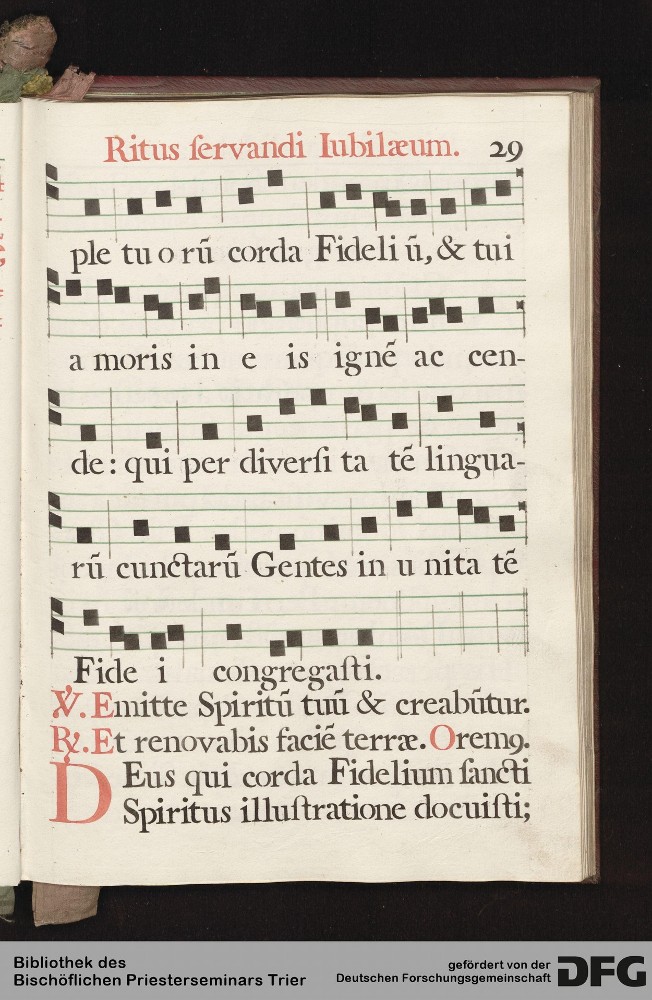 Ritus ſervandi Iubilæum. 29
ple tu o rũ corda Fideli ũ, & tui
a moris in e is ignẽ ac cen-
de: qui per diverſi ta tẽ lingua-
rũ cunctarũ Gentes in u nita tẽ
Fide i congregaſti.
℣. Emitte Spiritũ tuũ & creabũtur.
℟. Et renovabis faciẽ terræ. Oremꝰ.
DEus qui corda Fidelium ſancti
Spiritus illuſtratione docuiſti;
Bibliothek des
Bischöflichen Priesterseminars Trier
gefördert von der
Deutschen Forschungsgemeinschaft
DFG